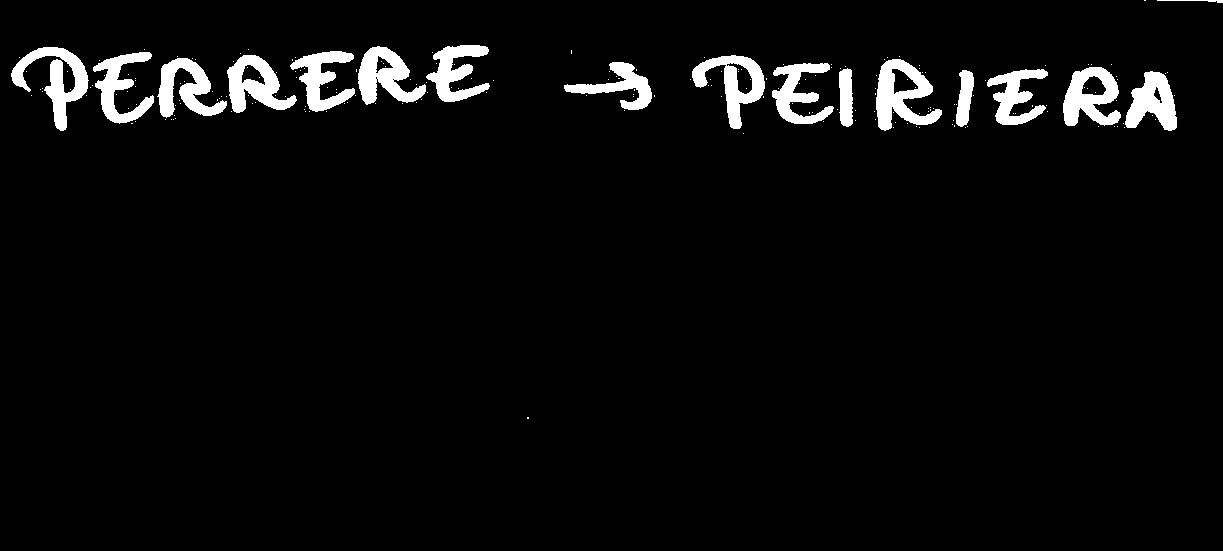 PERRERE → PEIRIERA